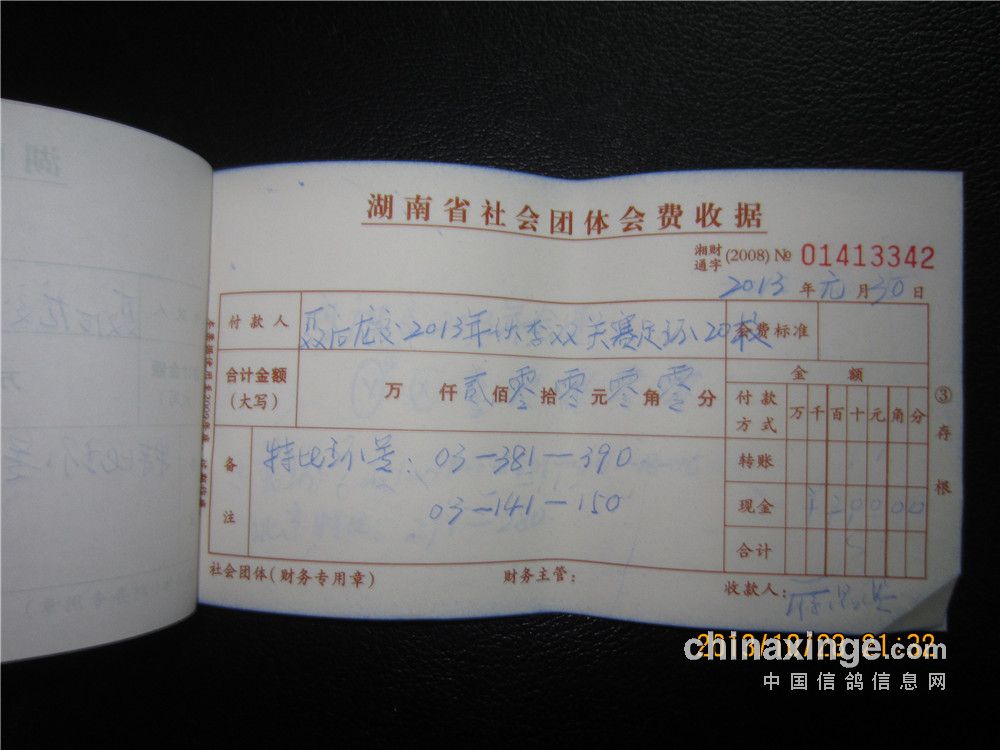 湖南省社会团体会费收据
湘财通字(2008) № 01413342
2013年元月30日
付款人 2013年秋季双关赛足环20枚 会费标准
合计金额(大写) 万 仟 贰佰零拾零元零角零分
金额
付款方式 万 千 百 十 元 角 分
转账
现金 ¥20000
合计
备注 特比环号: 03-381-390
03-141-150
③存根
社会团体(财务专用章) 财务主管: 收款人:
chinaxinge.com
中国信鸽信息网